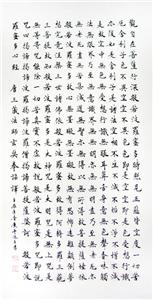 觀自在菩薩行深般若波羅蜜多時照見五蘊皆空度一切苦
厄舍利子色不異空空不異色色即是空空即是色受想行識
亦復如是舍利子是諸法空相不生不滅不垢不淨不增不減
是故空中無色無受想行識無眼耳鼻舌身意無色聲香味觸
法無眼界乃至無意識界無無明亦無無明盡乃至無老死亦
無老死盡無苦集滅道無智亦無得以無所得故菩提薩埵依
般若波羅蜜多故心無罣礙無罣礙故無有恐怖遠離顛倒夢
想究竟涅槃三世諸佛依般若波羅蜜多故得阿耨多羅三藐
三菩提故知般若波羅蜜多是大神咒是大明咒是無上咒是
無等等咒能除一切苦真實不虛故說般若波羅蜜多咒即說
咒曰揭諦揭諦波羅揭諦波羅僧揭諦菩提薩婆訶 般若波
羅蜜多心經 唐三藏法師玄奘奉詔譯